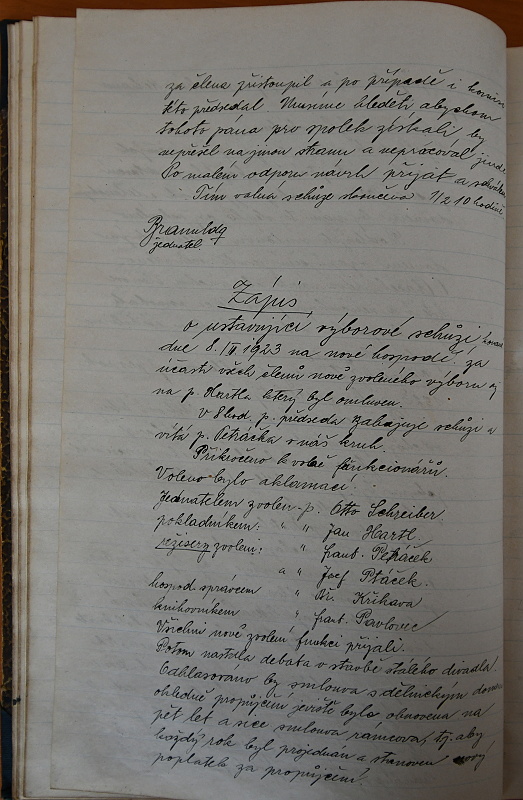 za člena přistoupil a po případě i
kto předsedal Musíme hleděti abychom
tohoto pána pro spolek získali by
nepřešel na jinou stranu a nepracoval jinde
Po malém odporu návrh přijat a schválen
Tím valná schůze skončena 1/2 10 hodině
jednatel.
Zápis
o ustavující výborové schůzi konané
dne 8./II 1923 na nové hospodě. za
účasti všech členů nově zvoleného výboru až
na p. Hartla který byl omluven.
v 8 hod. p. předseda zahajuje schůzi a
vítá p. Petráčka v náš kruh.
Přikročeno k volbě funkcionářů.
Voleno bylo aklamací.
Jednatelem zvolen p. Otto Schreiber.
pokladníkem: " " Jan Hartl.
režisery zvoleni: " frant. Petráček
a " Josef Ptáček.
hospod. správcem " Křihava
knihovníkem " frant. Pavlovec
Všichni nově zvolení funkci přijali.
Potom nastala debata o stavbě stálého divadla.
Odhlasováno by smlouva s dělnickým domem
ohledně propůjčení jeviště byla obnovena na
pět let a sice smlouva rámcová, tj. aby
každý rok byl projednán a stanoven nový
poplatek za propůjčení.